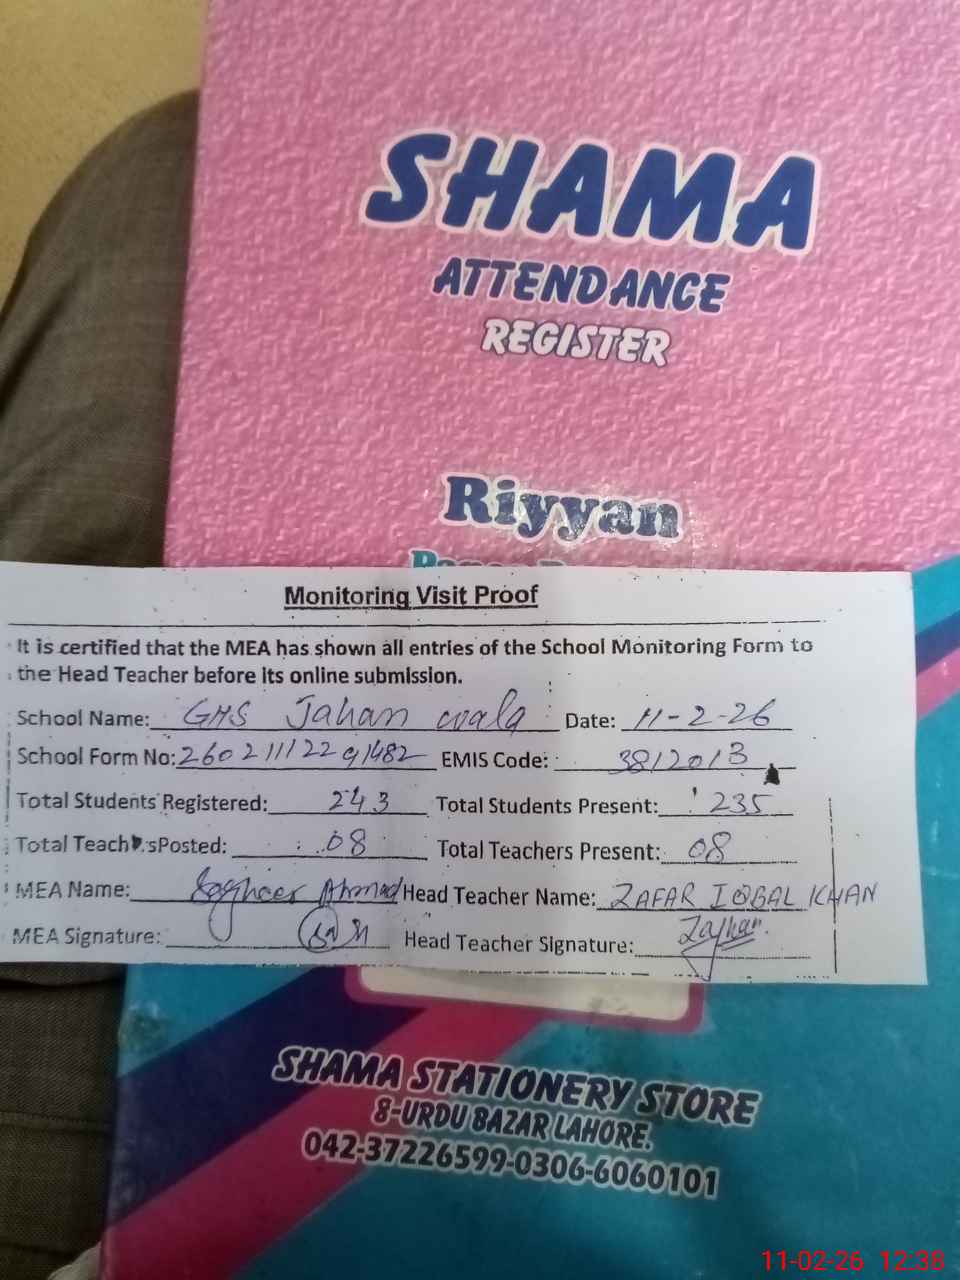 SHAMA
ATTENDANCE
REGISTER
Riyyan
Monitoring Visit Proof
It is certified that the MEA has shown all entries of the School Monitoring Form to
the Head Teacher before its online submission.
School Name: GHS Jahan wala Date: 11-2-26
School Form No: 26021112291482 EMIS Code: 3812013
Total Students Registered: 243 Total Students Present: 235
Total Teach sPosted: 08 Total Teachers Present: 08
MEA Name: Sagheer Ahmad Head Teacher Name: ZAFAR IQBAL KHAN
MEA Signature: Head Teacher Signature:
SHAMA STATIONERY STORE
8-URDU BAZAR LAHORE.
042-37226599-0306-6060101
11-02-26 12:38